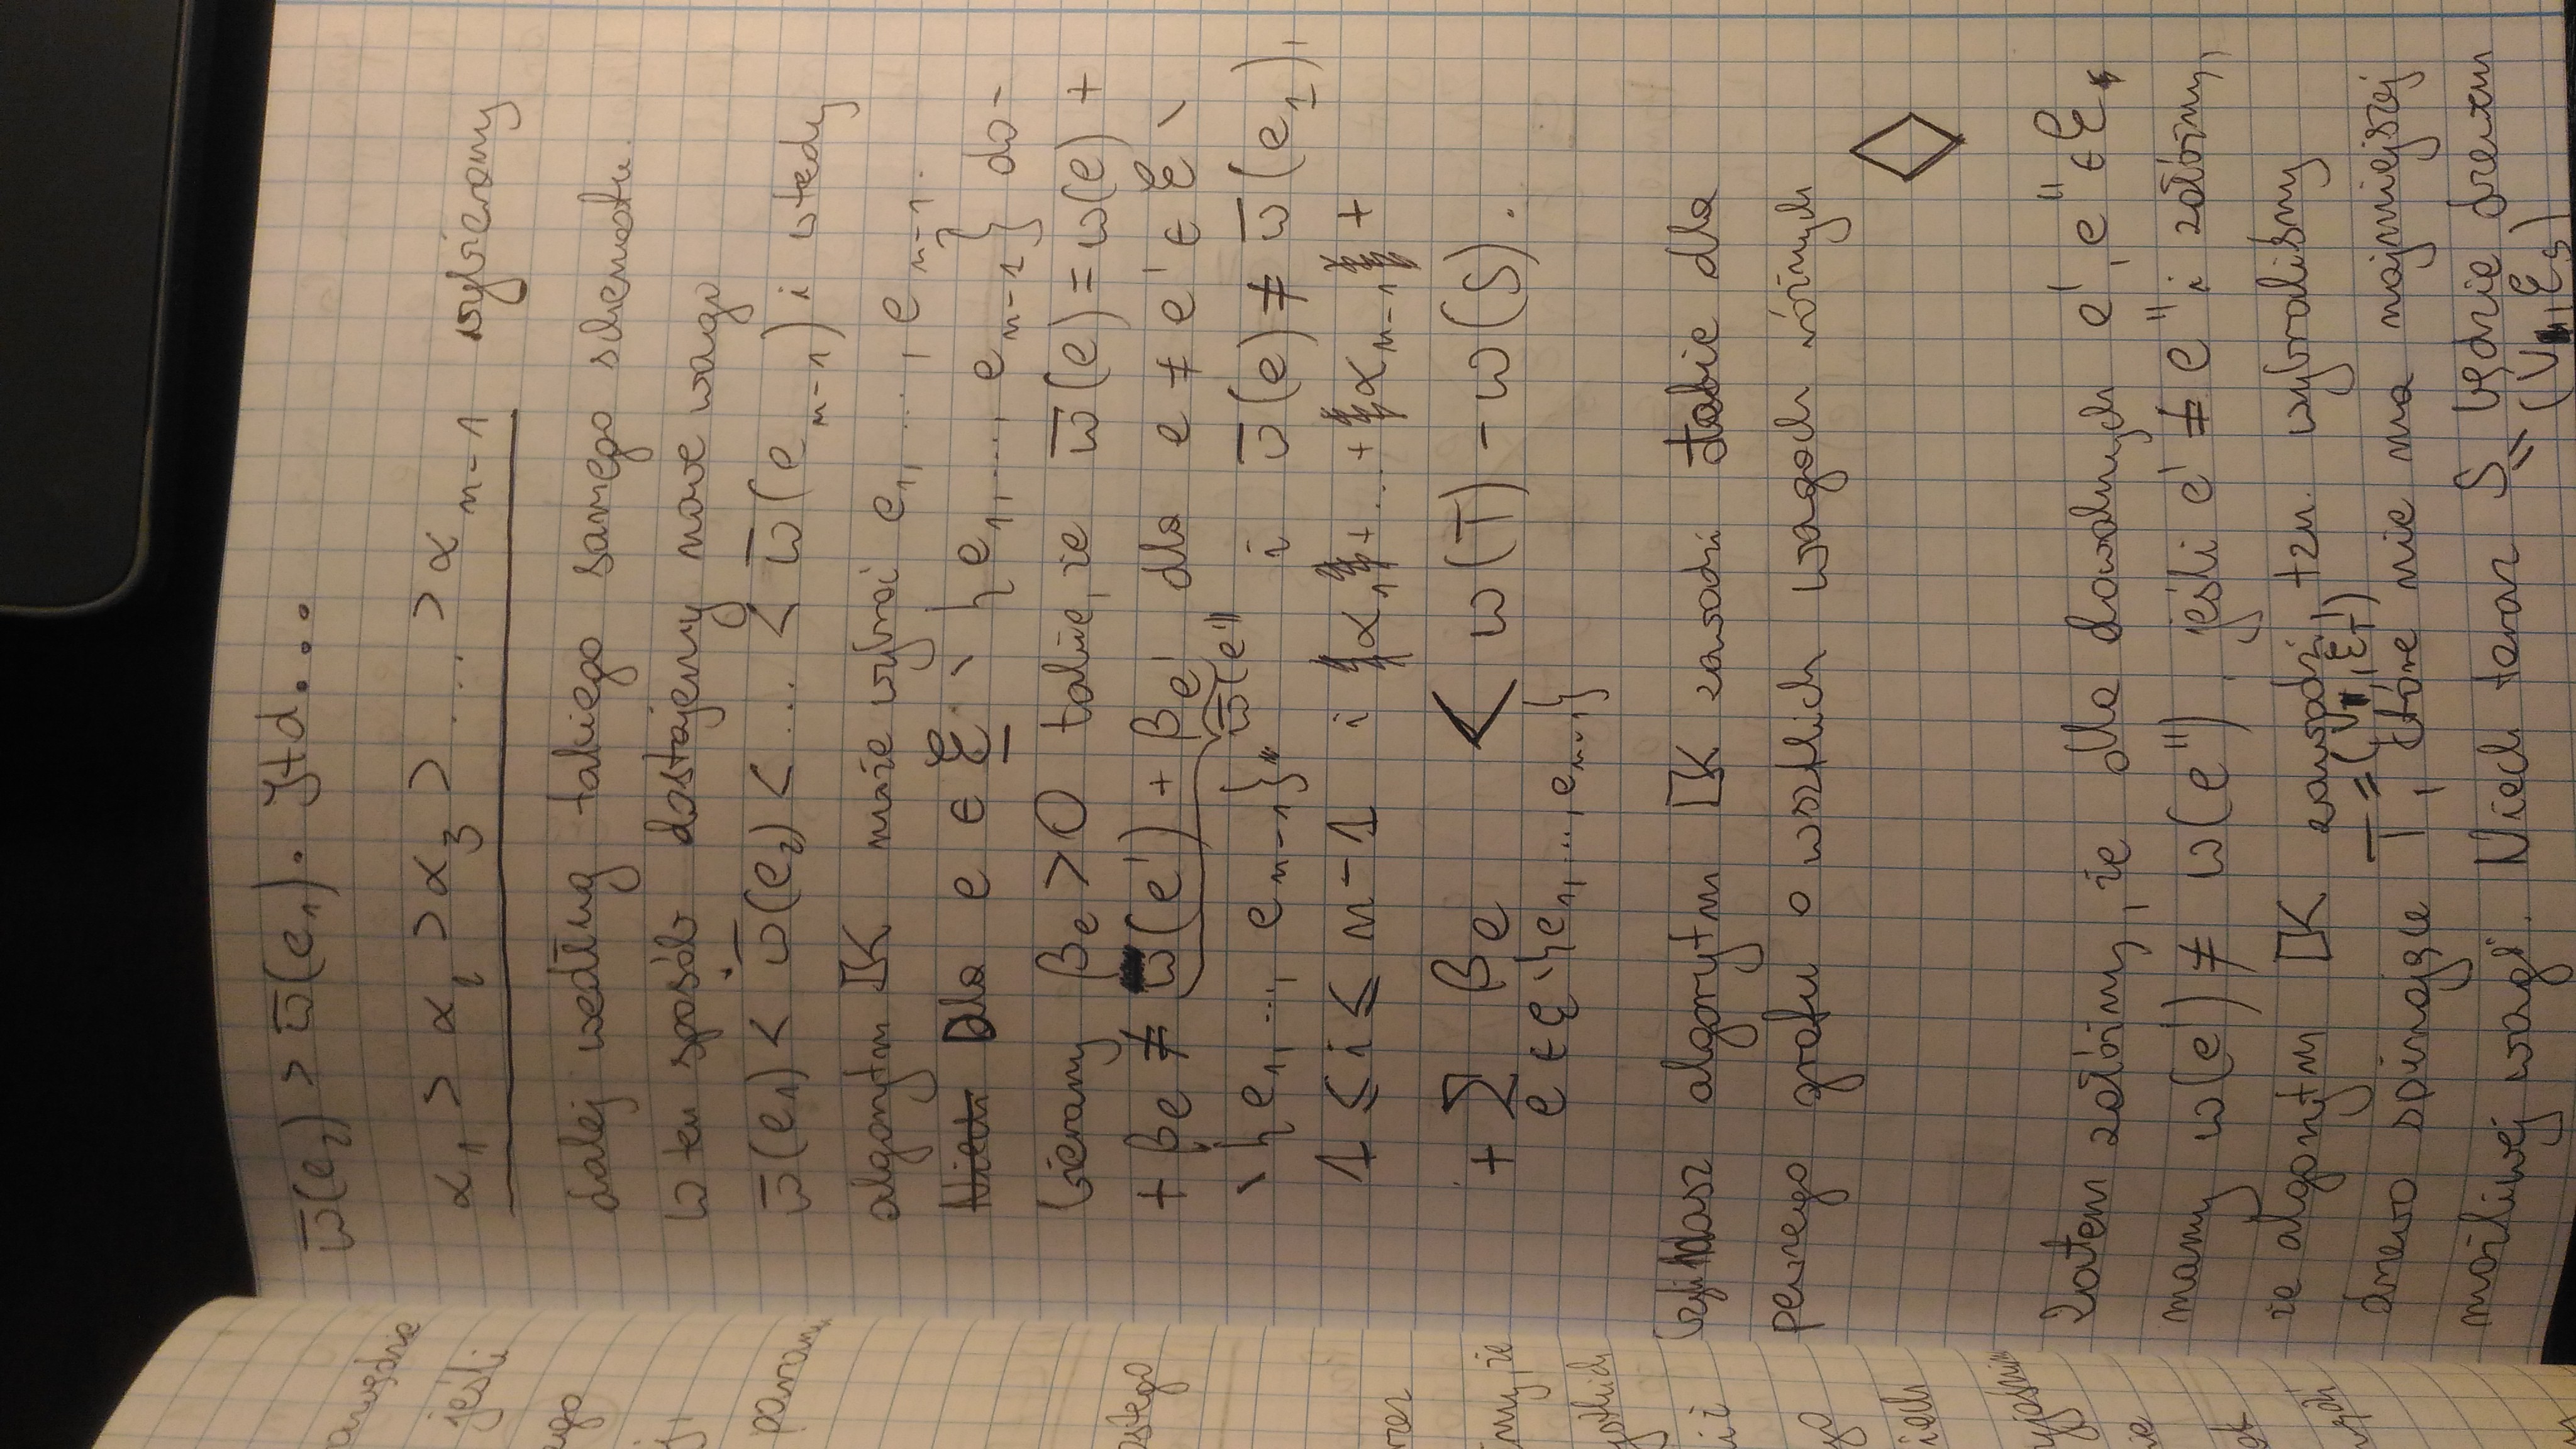 ω̄(e₂) > ω̄(e₁). Itd...
α₁ > α₂ > α₃ > ... > α_{n-1} wybieramy
dalej według takiego samego schematu.
W ten sposób dostajemy nowe wagi
ω̄(e₁) < ω̄(e₂) < ... < ω̄(e_{n-1}) i wtedy
algorytm K może wybrać e₁, ..., e_{n-1}.
Dla e ∈ ℰ \ {e₁, ..., e_{n-1}} do-
bieramy β_e > 0 takie, że ω̄(e) = ω(e) +
+ β_e ≠ ω(e') + β_e' dla e ≠ e' ∈ ℰ \
ω̄(e')
\ {e₁, ..., e_{n-1}} i ω̄(e) ≠ ω̄(e_i),
1 ≤ i ≤ n-1 i α₁ + ... + α_{n-1} +
+ Σ β_e < ω(T) - ω(S).
e ∈ ℰ \ {e₁, ..., e_{n-1}}
Czyli nasz algorytm K zawodzi także dla
pewnego grafu o wsztkich wagach różnych
◊
Zatem załóżmy, że dla dowolnych e', e'' ∈ ℰ
mamy ω(e') ≠ ω(e''), jeśli e' ≠ e'' i załóżmy,
że algorytm K zawodzi, tzn. wybraliśmy
= (V, ℰ_T)
drzewo spinające T, które nie ma najmniejszej
możliwej wagi. Niech teraz S będzie drzewem
= (V, ℰ_S)
awędzie
jeśli
ego
param
ostego
imy, że
ystkich